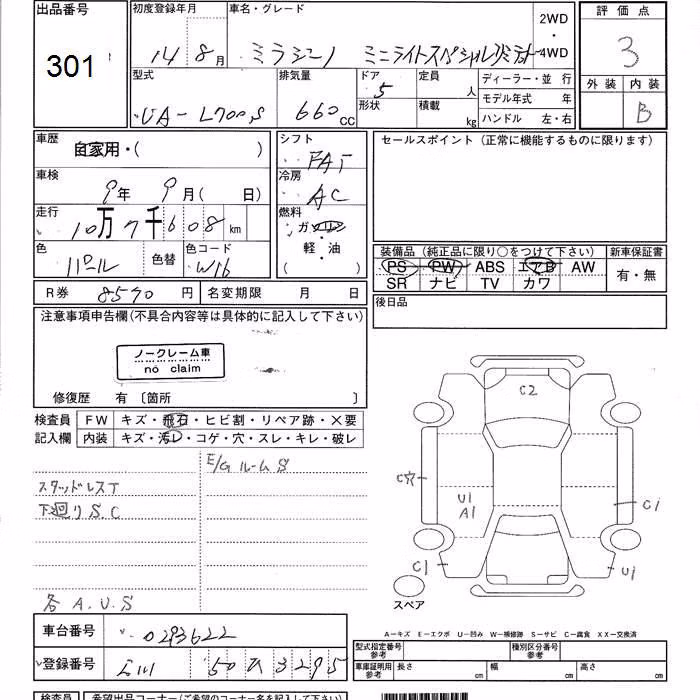 出品番号
301
初度登録年月
14 8月
車名・グレード
ミラジーノ ミニライトスペシャルリミテッド
2WD
・
4WD
評価点
3
外装 内装
B
型式
UA-L700S
排気量
660cc
ドア
5
形状
定員
人
積載
kg
ディーラー・並行
モデル年式 年
ハンドル 左・右
車歴
自家用・( )
車検
9年 9月( 日)
走行
10万7千608km
色
パール
色替
色コード
W16
シフト
FAT
冷房
AC
燃料
ガソリン
軽・油
( )
セールスポイント(正常に機能するものに限ります)
装備品(純正品に限り○をつけて下さい)
新車保証書
PS PW ABS エアB AW
SR ナビ TV カワ
有・無
R券 8590円
名変期限 月 日
後日品
注意事項申告欄(不具合内容等は具体的に記入して下さい)
ノークレーム車
no claim
修復歴 有 〔箇所 〕
検査員
記入欄
FW キズ・飛石・ヒビ割・リペア跡・X要
内装 キズ・汚レ・コゲ・穴・スレ・キレ・破レ
E/Gルーム S
スタッドレスT
下廻りS.C
各A.U.S
C2
C穴
U1
A1
C1
C1
U1
スペア
A-キズ E-エクボ U-凹み W-補修跡 S-サビ C-腐食 XX-交換済
車台番号
0293622
登録番号
50 ひ 3295
型式指定番号
参考
種別区分番号
参考
車庫証明用
参考
長さ cm
幅 cm
高さ cm
検査員
希望出品コーナー(ご希望のコーナー名を記入して下さい)